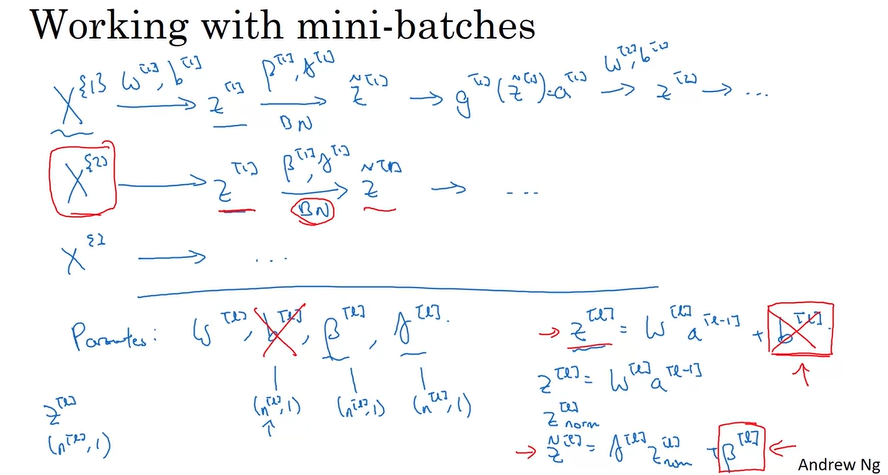 Working with mini-batches
X^{1} W^[1], b^[1] → z^[1] β^[1], γ^[1] → BN z̃^[1] → g^[1](z̃^[1]) = a^[1] W^[2], b^[2] → z^[2] → ...
X^{2} → z^[1] β^[1], γ^[1] → BN z̃^[1] → ...
X^{3} → ...
Parameters: W^[l], b^[l], β^[l], γ^[l].
(n^[l], 1) (n^[l], 1) (n^[l], 1)
z^[l]
(n^[l], 1)
→ z^[l] = W^[l] a^[l-1] + b^[l].
z^[l] = W^[l] a^[l-1]
z^[l]_norm
→ z̃^[l] = γ^[l] z^[l]_norm + β^[l] ←
Andrew Ng